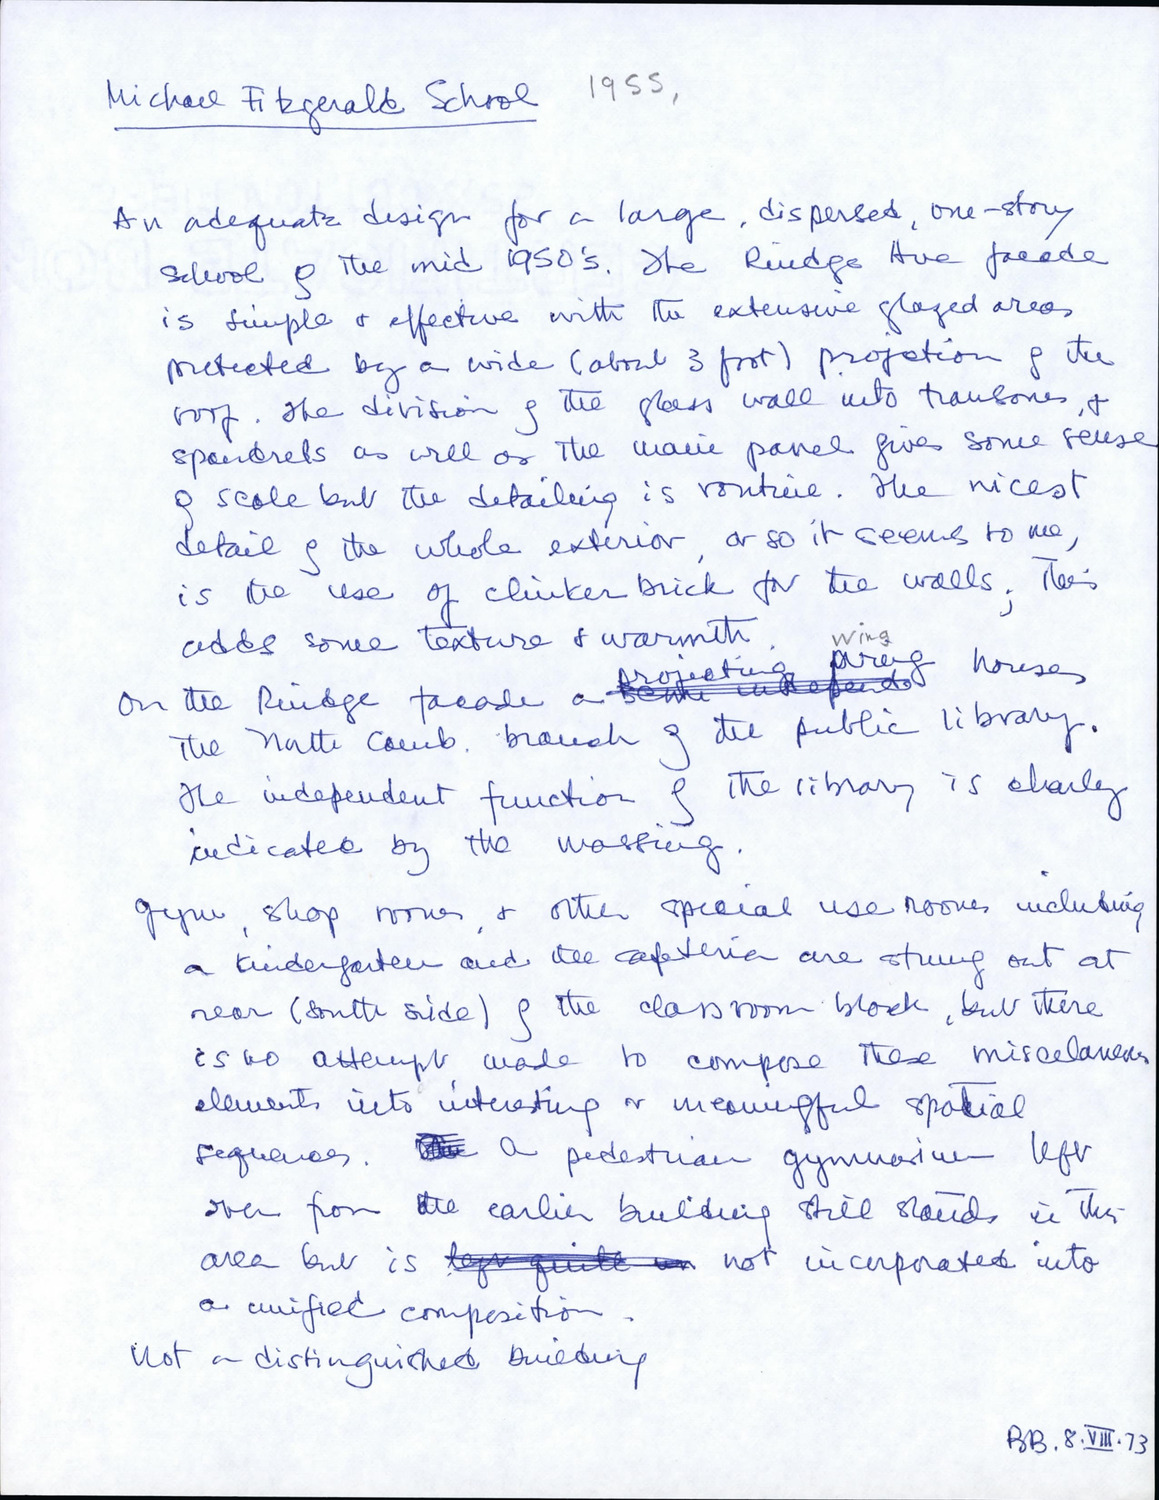 Michael Fitzgerald School 1955,
An adequate design for a large, dispersed, one-story
school of the mid 1950's. The Rindge Ave facade
is simple & effective with the extensive glazed areas
protected by a wide (about 3 foot) projection of the
roof. The division of the glass wall into transomes, &
spandrels as well as the main panel gives some sense
of scale but the detailing is routine. The nicest
detail of the whole exterior, or so it seems to me,
is the use of clinker brick for the walls; This
adds some texture & warmth.
wing
On the Rindge facade a semi independ projecting wing houses
the North Camb. branch of the public library.
The independent function of the library is clearly
indicated by the massing.
Gym, shop rooms, & other special use rooms including
a kindergarten and the cafeteria are strung out at
rear (south side) of the classroom block, but there
is no attempt made to compose these miscelaneous
elements into interesting or meaningful spatial
sequences. The A pedestrian gymnasium left
over from the earlier building still stands in this
area but is left quite un not incorporated into
a unified composition.
Not a distinguished building
BB. 8.VIII.73